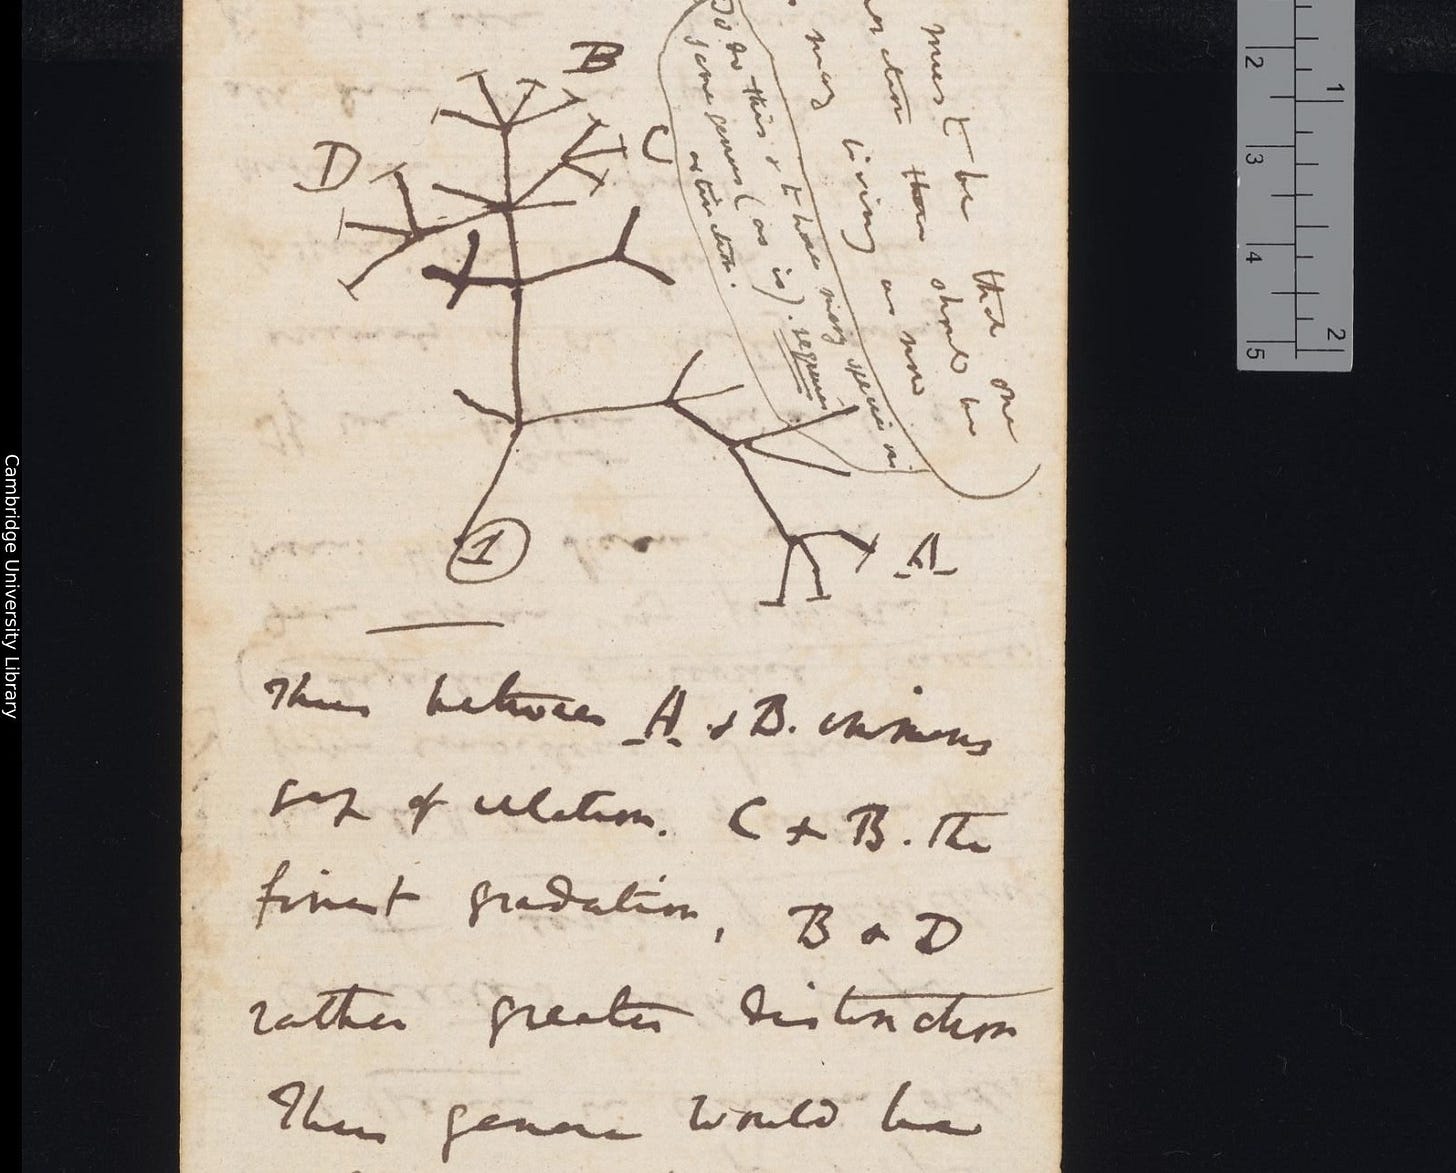 must be that one
generation then should be
may living as now
To do this & to have many species in
same genus (as is). requires
extinction.
B
D
C
A
1
Thus between A & B. immens
gap of relation. C & B. the
finest gradation, B & D
rather greater distinction
Thus genera would be
Cambridge University Library
1
2
2
3
4
5